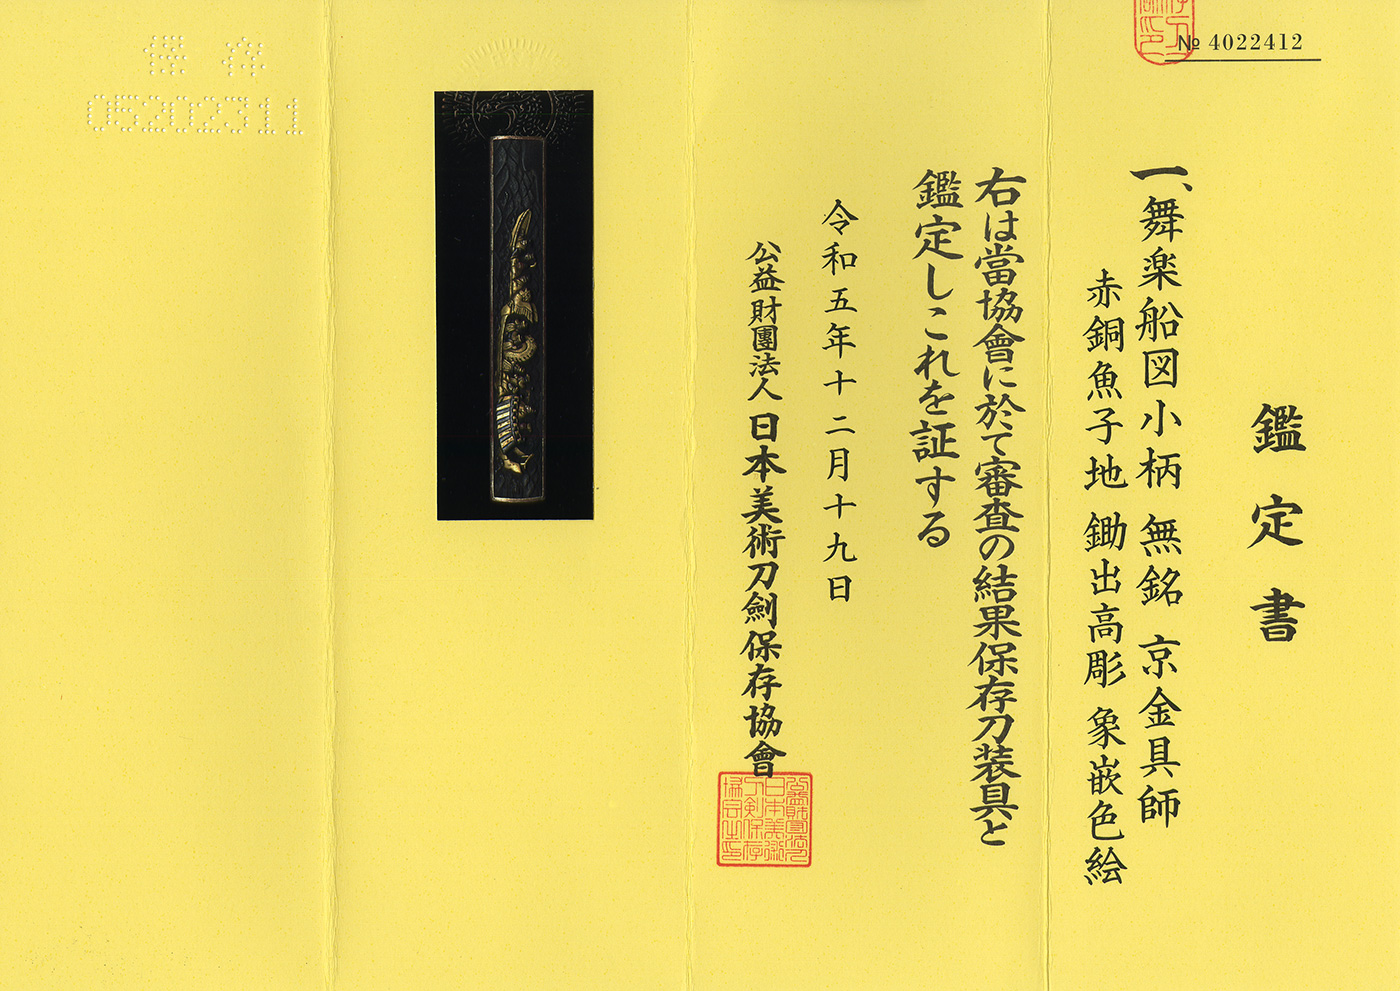 № 4022412
鑑定書
一、舞楽船図小柄 無銘 京金具師
赤銅魚子地 鋤出高彫 象嵌色絵
右は當協會に於て審査の結果保存刀装具と
鑑定しこれを証する
令和五年十二月十九日
公益財團法人 日本美術刀劍保存協會
公益財団法人日本美術刀剣保存協会之印
保存
05202311